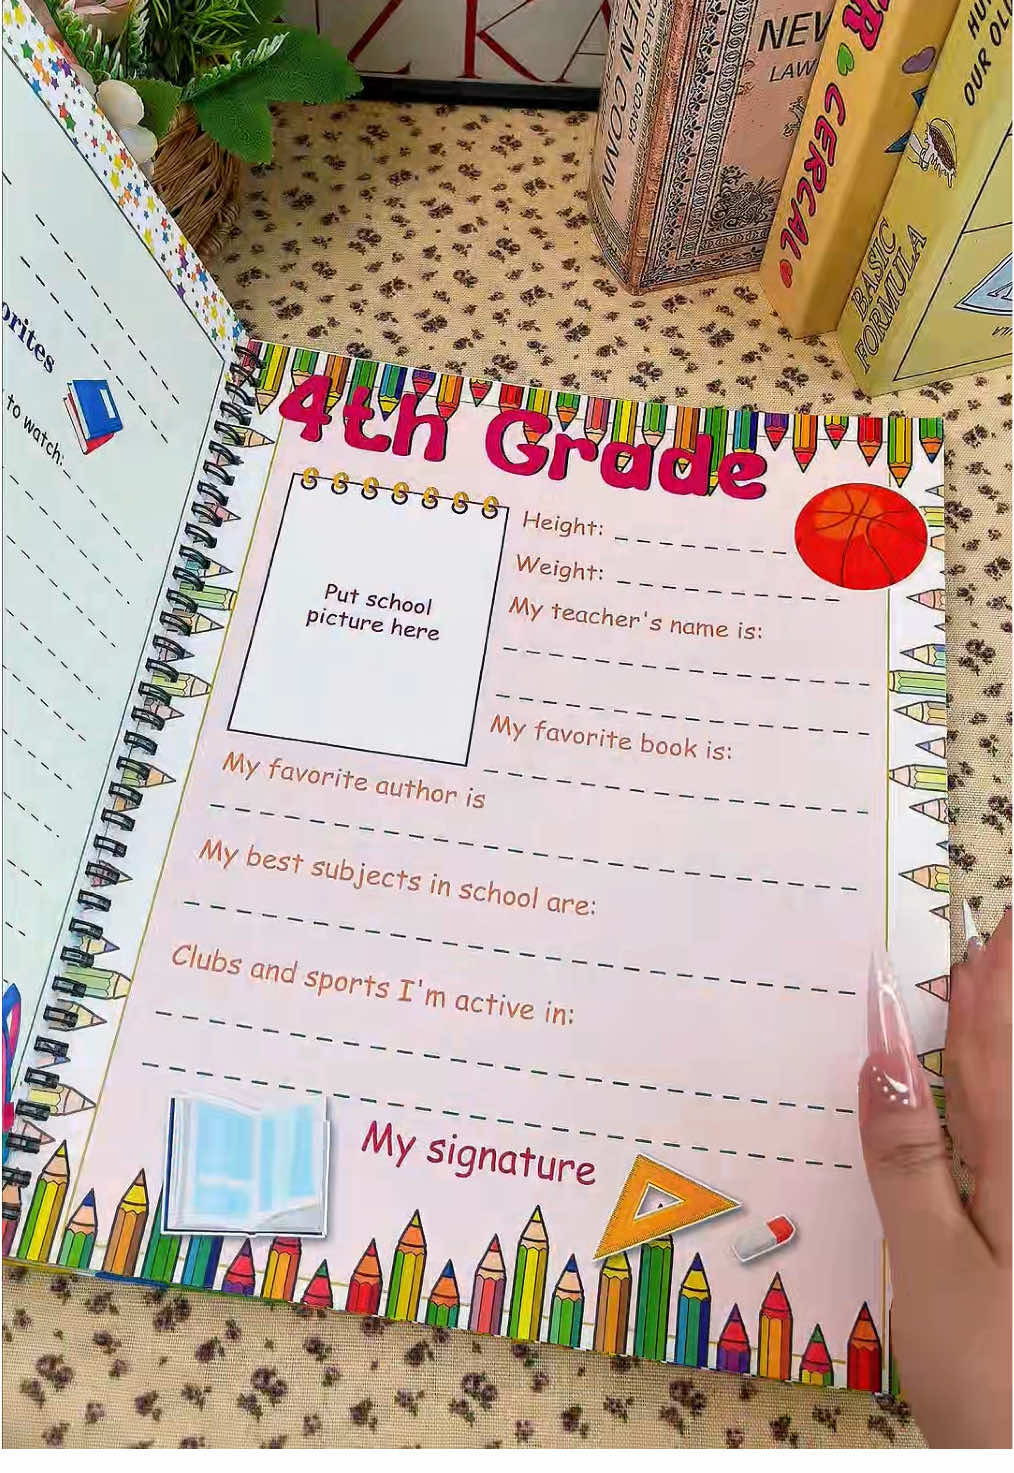 LEN CONN
CALECHE COACH
NEW
LAW
CERCAL
HUM
OUR OL
BASIC
FORMULA
orites
to watch:
4th Grade
Put school
picture here
Height:
Weight:
My teacher's name is:
My favorite book is:
My favorite author is
My best subjects in school are:
Clubs and sports I'm active in:
My signature